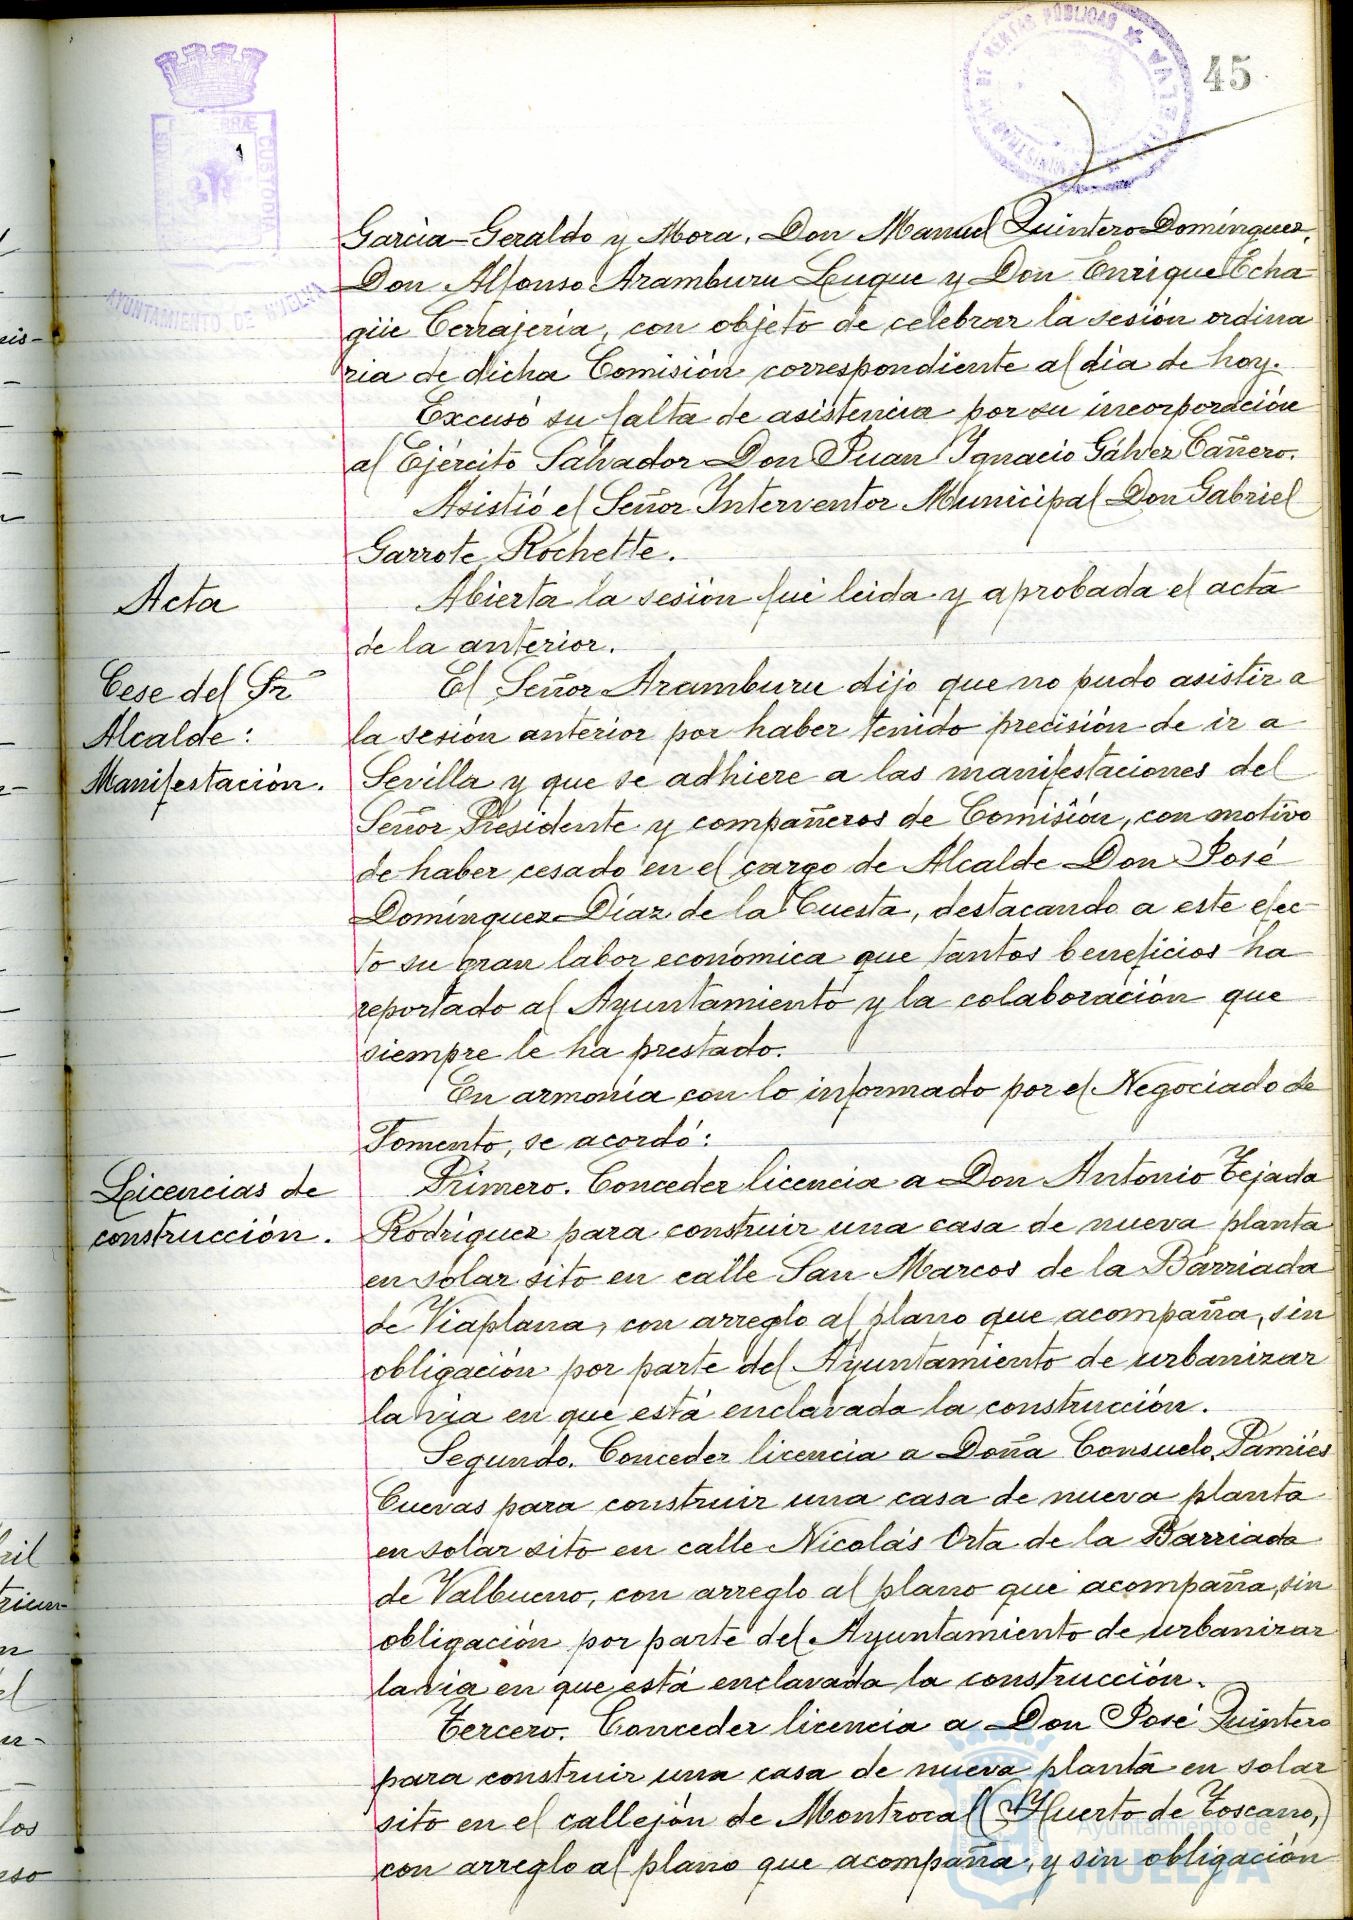 45
PORTUS MARIS
ET TERRÆ
CUSTODIA
AYUNTAMIENTO DE HUELVA
ADMINISTRACION DE RENTAS PÚBLICAS
HUELVA
García-Geraldo y Mora, Don Manuel Quintero Domínguez,
Don Alfonso Aramburu Luque y Don Enrique Echa
güe Cerrajería, con objeto de celebrar la sesión ordina
ria de dicha Comisión correspondiente al dia de hoy.
Excusó su falta de asistencia por su incorporación
al Ejército Salvador Don Juan Ignacio Gálvez Cañero.
Asistió el Señor Interventor Municipal Don Gabriel
Garrote Rochette.
Acta
Abierta la sesión fué leida y aprobada el acta
de la anterior.
Cese del Sr
Alcalde:
Manifestación.
El Señor Aramburu dijo que no pudo asistir a
la sesión anterior por haber tenido precisión de ir a
Sevilla y que se adhiere a las manifestaciones del
Señor Presidente y compañeros de Comisión, con motivo
de haber cesado en el cargo de Alcalde Don José
Domínguez Díaz de la Cuesta, destacando a este efec-
to su gran labor económica que tantos beneficios ha
reportado al Ayuntamiento y la colaboración que
siempre le ha prestado.
En armonía con lo informado por el Negociado de
Fomento, se acordó:
Licencias de
construcción.
Primero. Conceder licencia a Don Antonio Tejada
Rodríguez para construir una casa de nueva planta
en solar sito en calle San Marcos de la Barriada
de Viaplana, con arreglo al plano que acompaña, sin
obligación por parte del Ayuntamiento de urbanizar
la via en que está enclavada la construcción.
Segundo. Conceder licencia a Doña Consuelo Pamiés
Cuevas para construir una casa de nueva planta
en solar sito en calle Nicolás Orta de la Barriada
de Valbueno, con arreglo al plano que acompaña, sin
obligación por parte del Ayuntamiento de urbanizar
la via en que está enclavada la construcción.
Tercero. Conceder licencia a Don José Quintero
para construir una casa de nueva planta en solar
sito en el callejón de Montrocal (Huerto de Toscano,)
con arreglo al plano que acompaña, y sin obligación
Ayuntamiento de
HUELVA